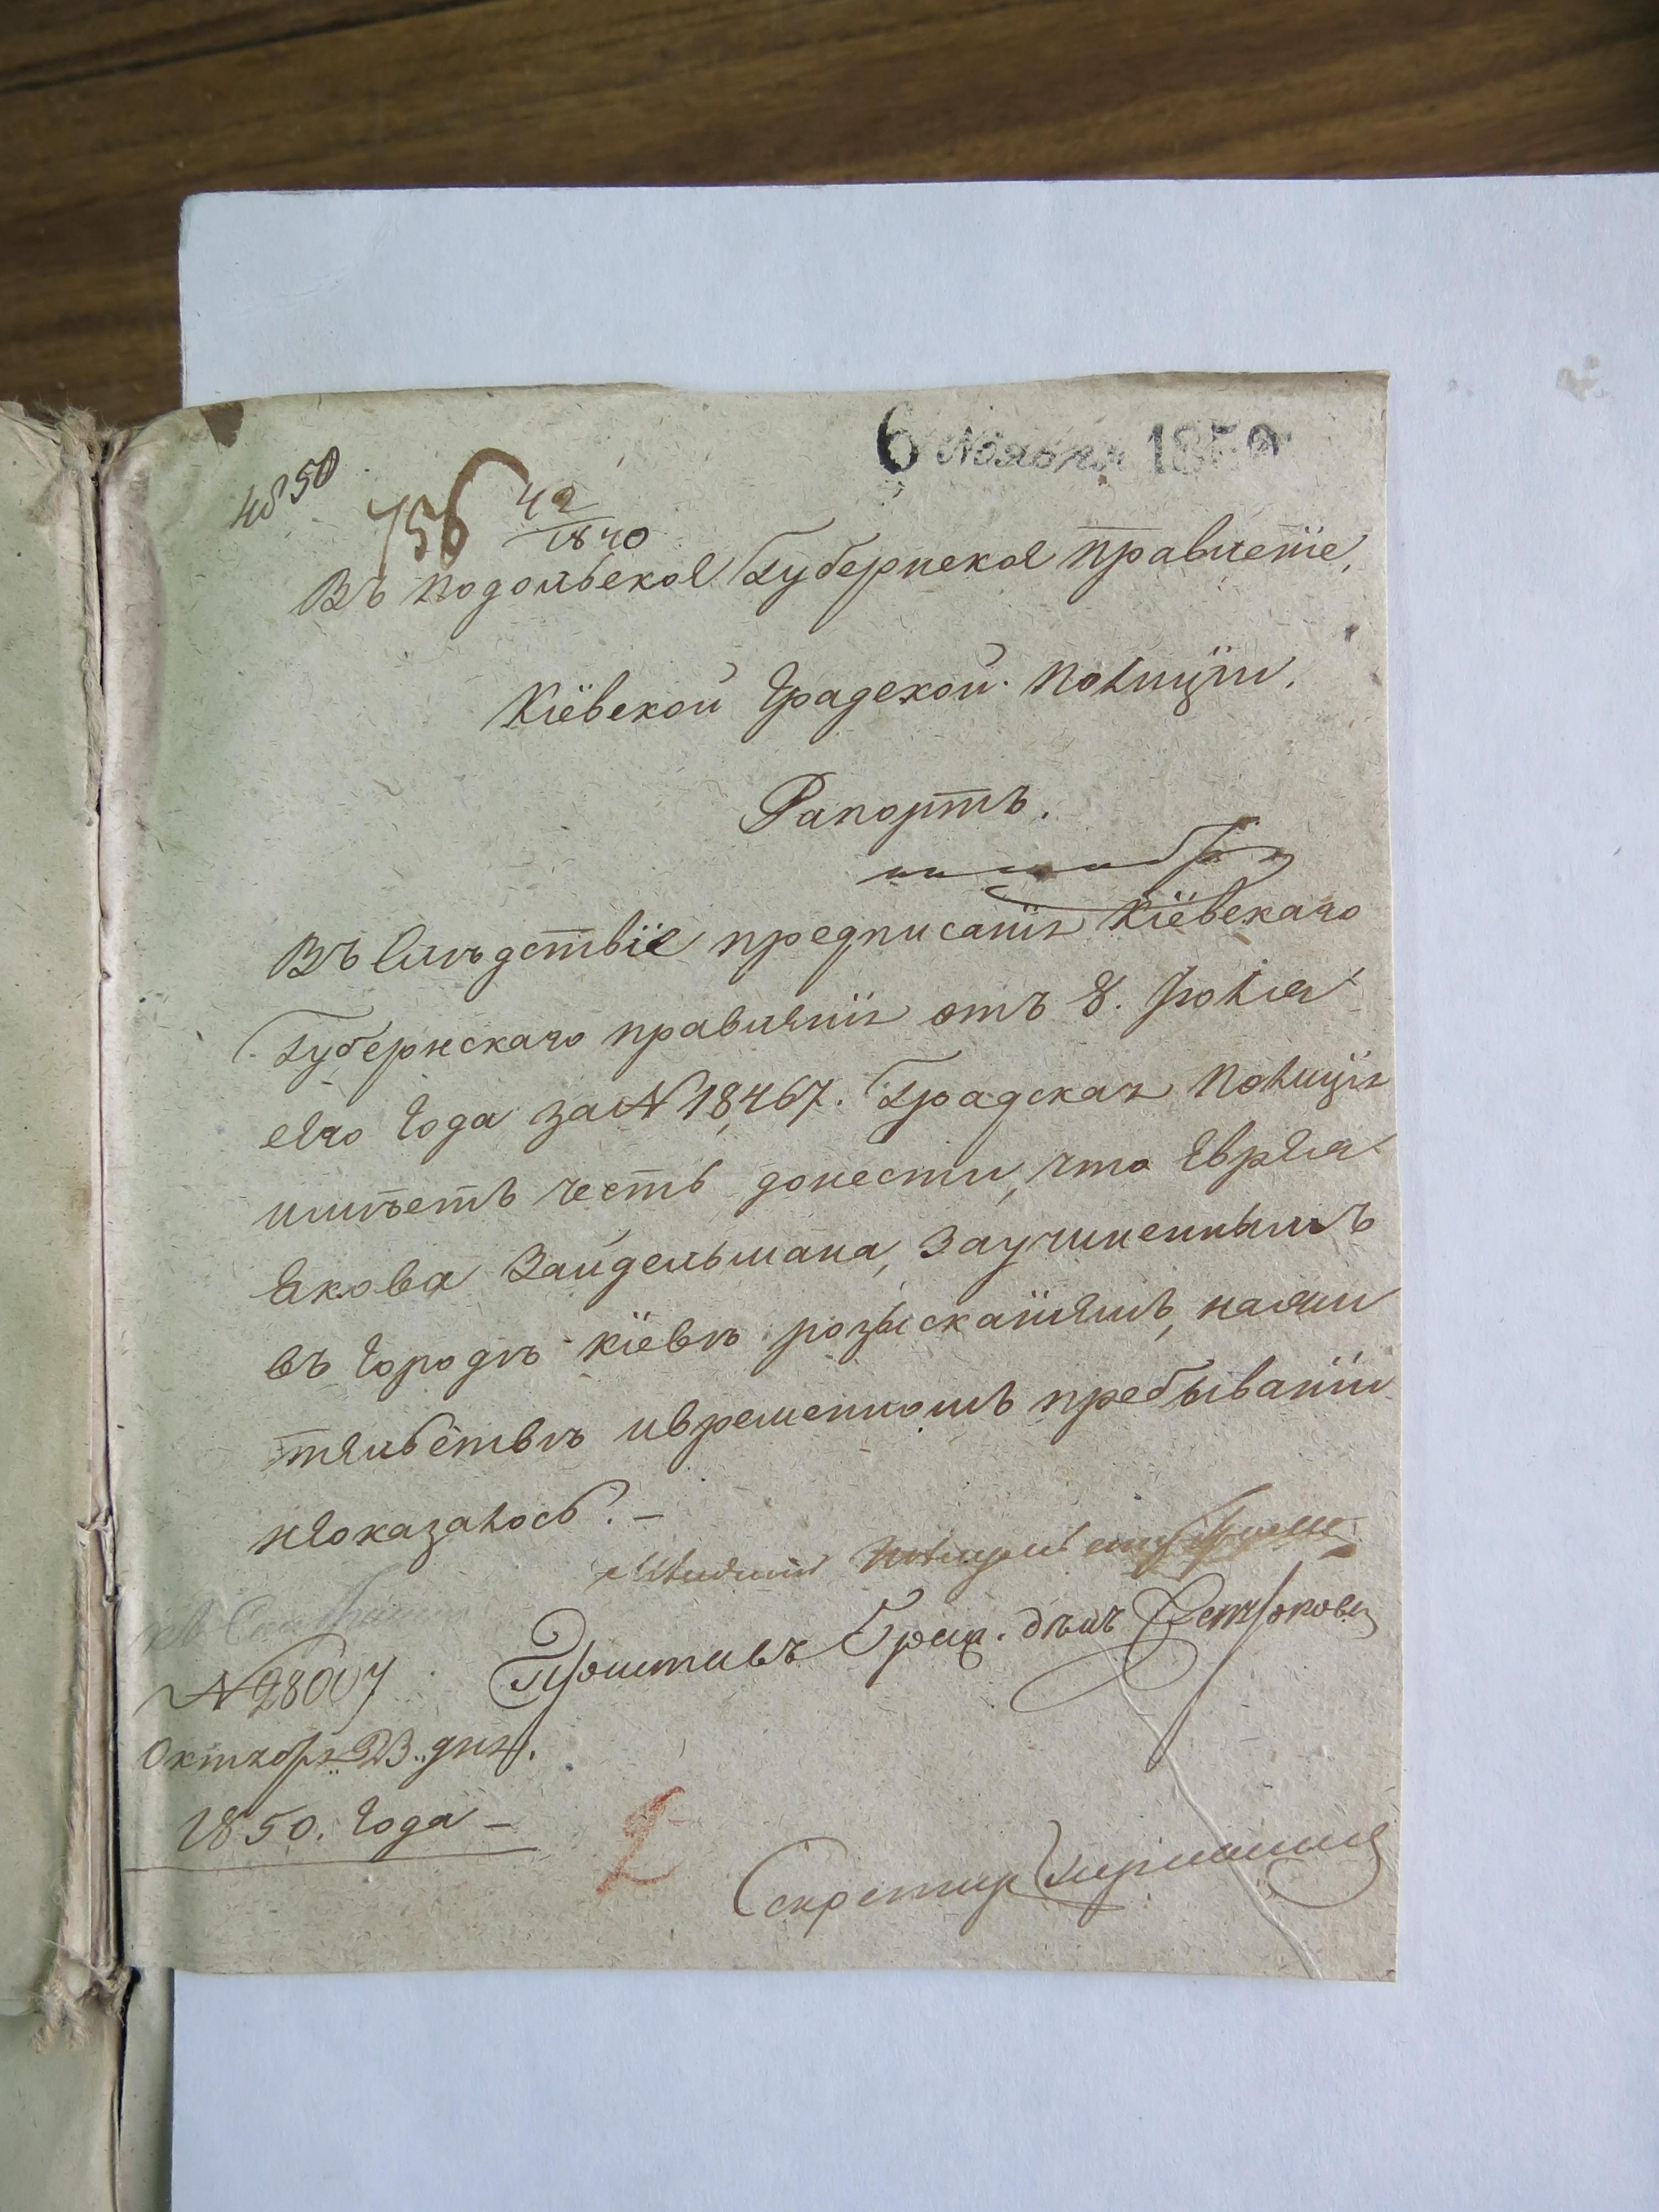 6 Ноября 1850
756 42/1840
Въ Подольское Губернское Правленіе,
Кіевской Градской Полиціи.
Рапортъ.
Въ слѣдствіе предписанія Кіевскаго
Губернскаго правленія отъ 8. Іюля
сего года за № 18,467. Градская Полиція
имѣетъ честь донести, что Еврея
Якова Зайдельмана, заучиненнымъ
въ городѣ Кіевѣ розысканіямъ, нажи
тельствѣ ивременномъ пребываніи
неоказалось. —
Приставъ Граж. дѣлъ
№ 28007
Октября 23. дня.
1850. года —
Секретар